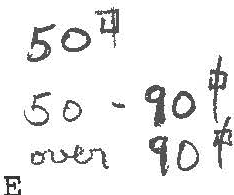 50
50 - 90
over 90
E